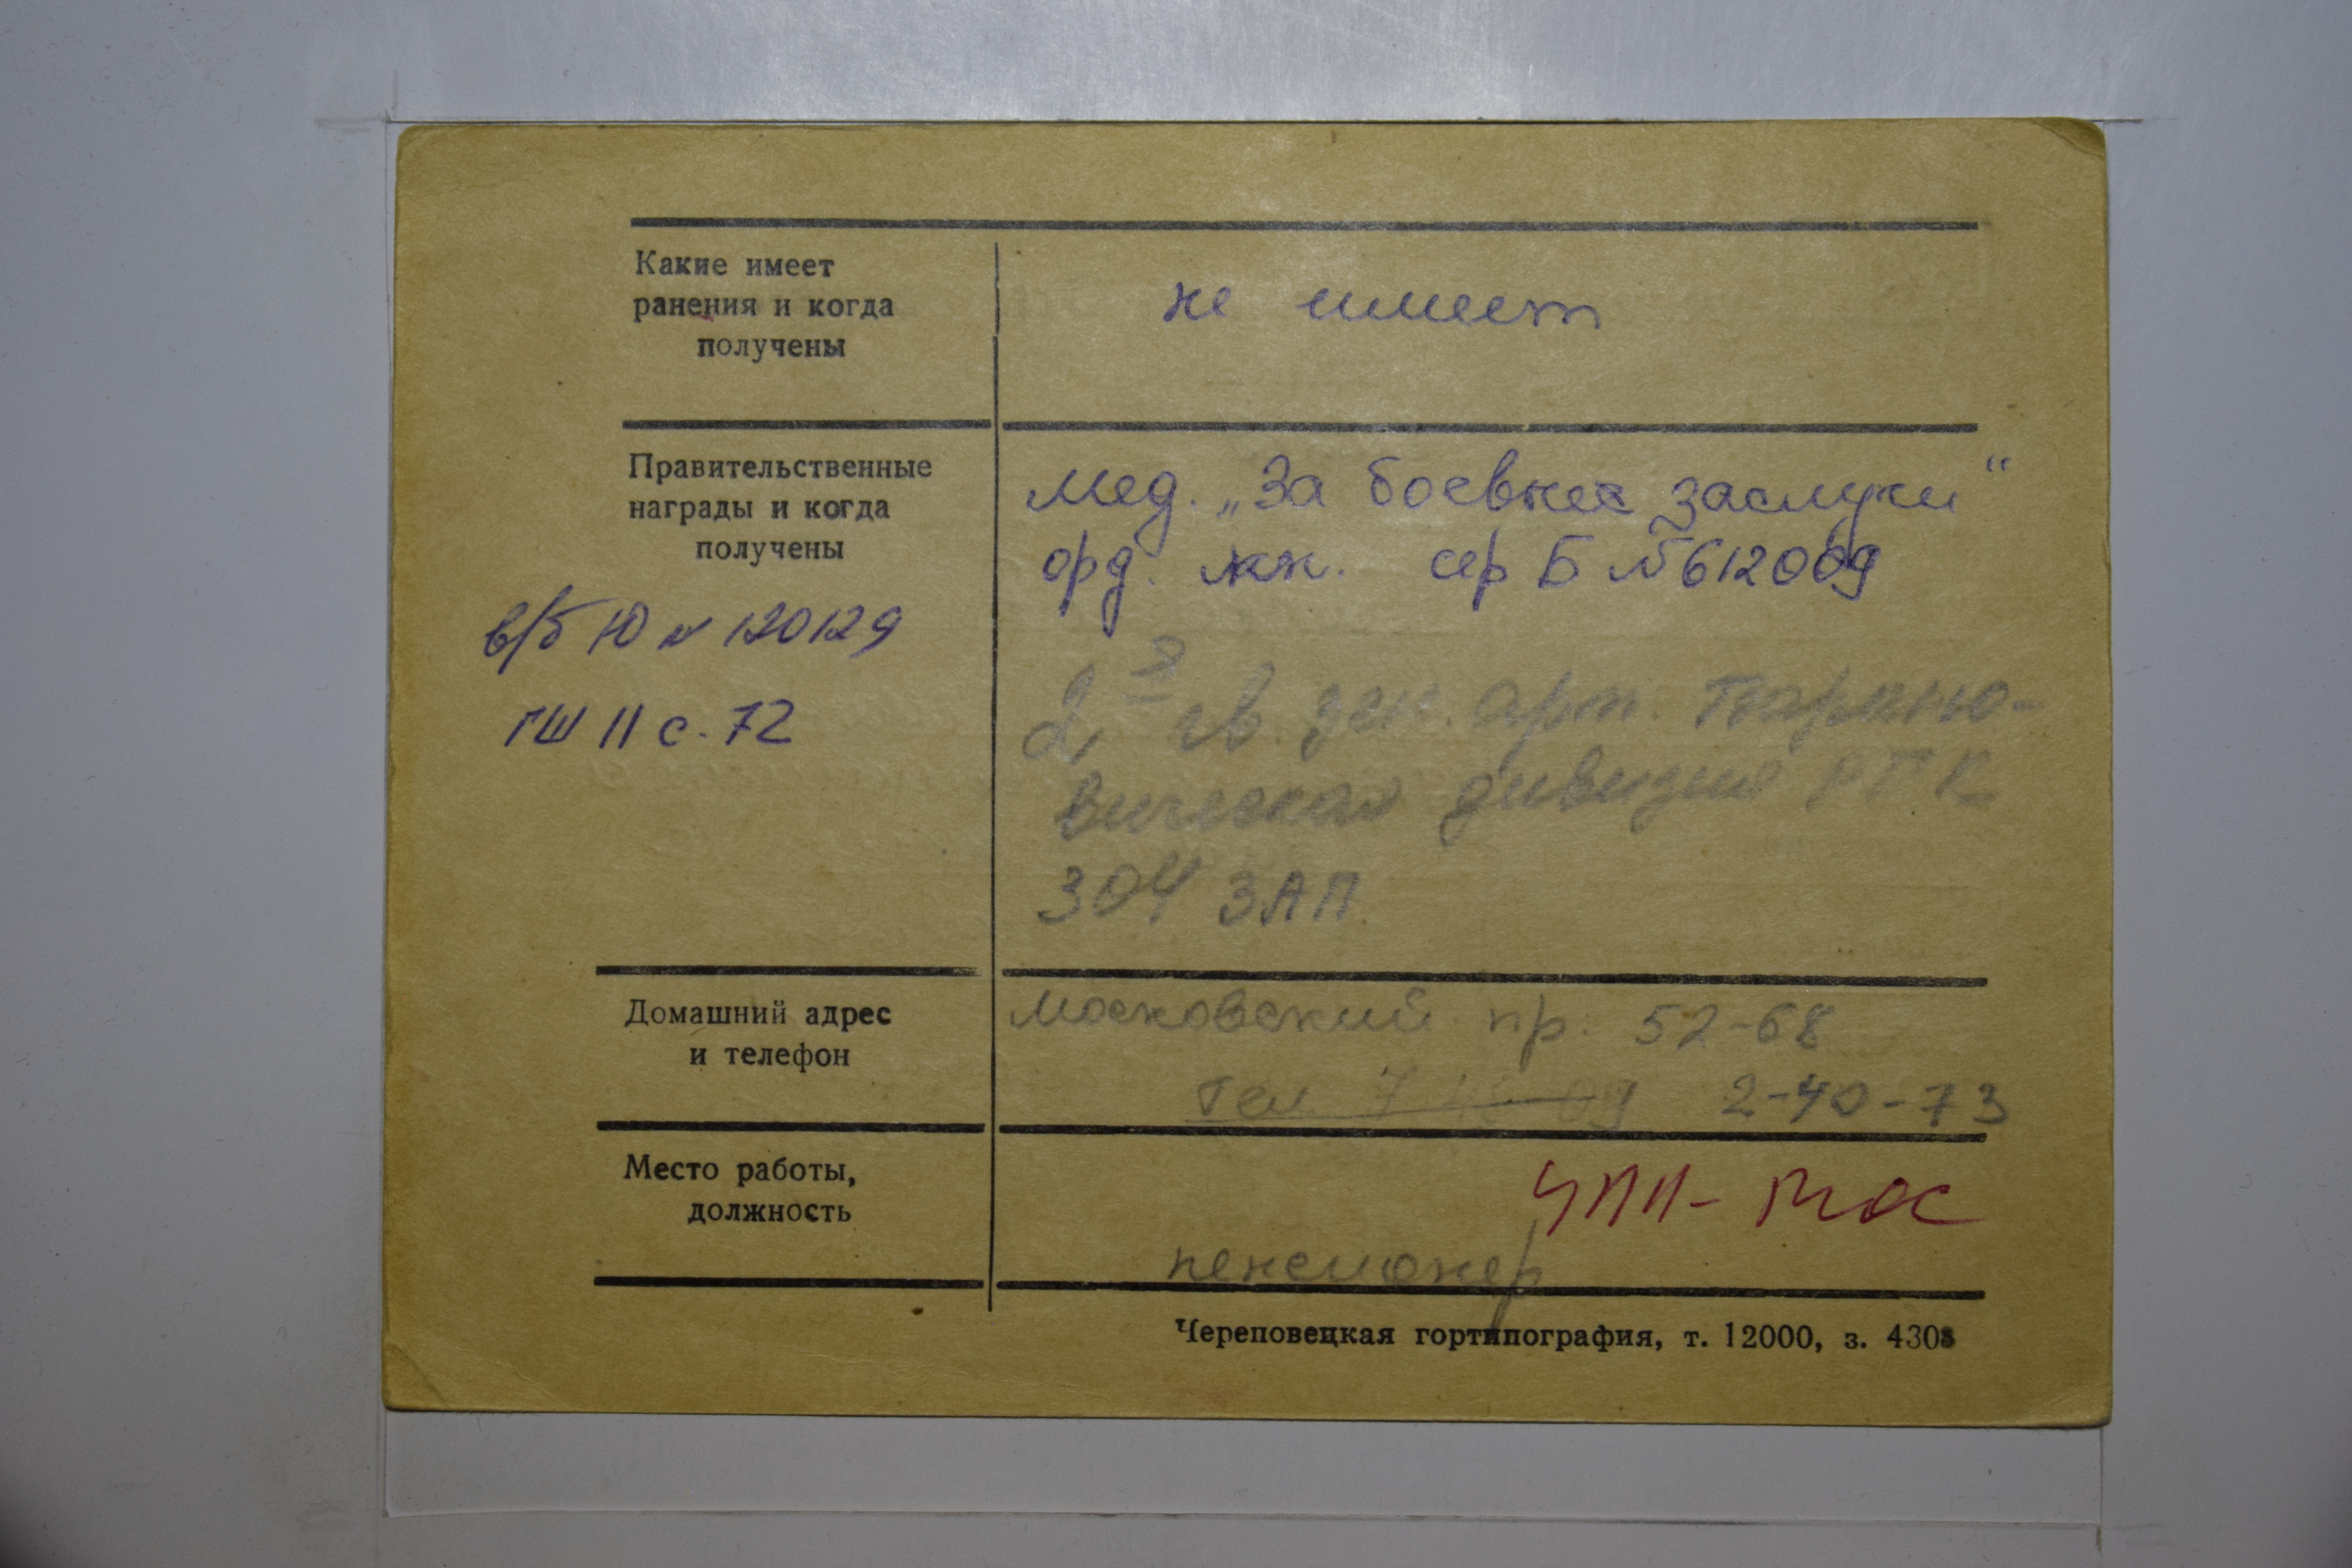 Какие имеет
ранения и когда
получены
не имеет
Правительственные
награды и когда
получены
мед. „За боевые заслуги“
орд. кн. сер Б № 612009
в/б Ю № 120129
ГШ II с. 72
2я гв зен. арт. Тарно-
вическая дивизия РГК
304 ЗАП.
Домашний адрес
и телефон
Московский пр. 52-68
Тел. 2-40-73
Место работы,
должность
пенсионер
Череповецкая гортипография, т. 12000, з. 4308